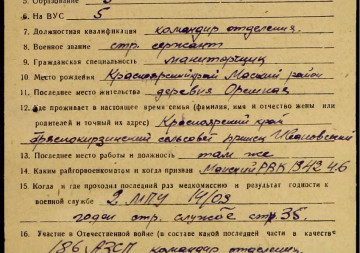 5. Образование 5
6. На ВУС 5
7. Должностная квалификация командир отделения.
8. Военное звание стр. сержант
9. Гражданская специальность
10. Место рождения Красноярский край Манский район
11. Последнее место жительства деревня Орешная
12. Где проживает в настоящее время семья (фамилия, имя и отчество жены или
родителей и точный их адрес) Красноярский край
сельсовет прииск Ивановский
13. Последнее место работы и должность там же
14. Каким райгорвоенкоматом и когда призван Манский РВК 1942 4.6
15. Когда и где проходил последний раз медкомиссию и результат годности к
военной службе 2 МПУ 14/03
годен стр. службе стр 35.
16. Участие в Отечественной войне (в составе какой последней части в качестве
186 АЗСП командир отделения.